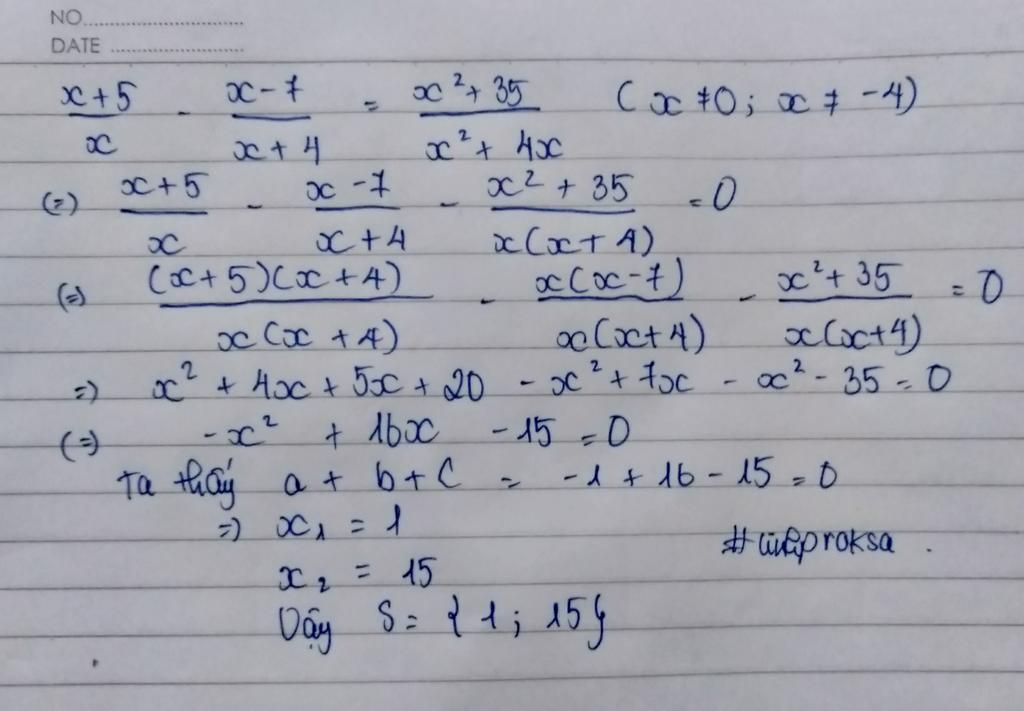 NO.............................
DATE .........................
x+5/x - x-7/x+4 = x²+35/x²+4x (x≠0; x≠-4)
(=) x+5/x - x-7/x+4 - x²+35/x(x+4) = 0
(=) (x+5)(x+4)/x(x+4) - x(x-7)/x(x+4) - x²+35/x(x+4) = 0
=) x² + 4x + 5x + 20 - x² + 7x - x² - 35 = 0
(=) -x² + 16x - 15 = 0
Ta thấy a + b + c = -1 + 16 - 15 = 0
=) x₁ = 1
x₂ = 15
Vậy S = { 1 ; 15}